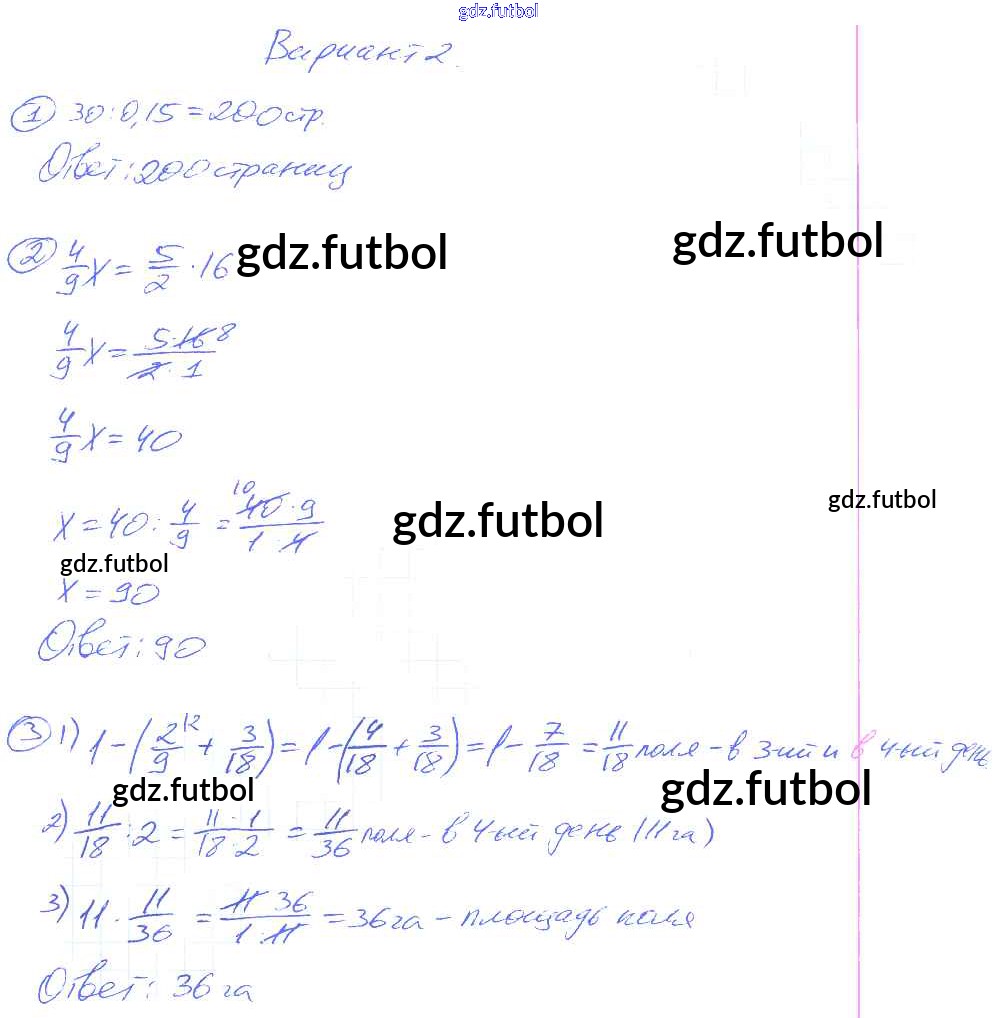 gdz.futbol
Вариант 2.
① 30 : 0,15 = 200 стр.
Ответ: 200 страниц
② 4/9 x = 5/2 · 16 gdz.futbol gdz.futbol
4/9 x = 5·16 8 / 2 · 1
4/9 x = 40
x = 40 : 4/9 = 10 40 · 9 / 1 · 4 gdz.futbol gdz.futbol
gdz.futbol
x = 90
Ответ: 90
③ 1) 1 - (2/9 |2 + 3/18) = 1 - (4/18 + 3/18) = 1 - 7/18 = 11/18 поля - в 3-ий и в 4-ый день
gdz.futbol gdz.futbol
2) 11/18 : 2 = 11 · 1 / 18 · 2 = 11/36 поля - в 4-ый день (11 га)
3) 11 · 11/36 = 11 36 / 1 · 11 = 36 га - площадь поля
Ответ: 36 га